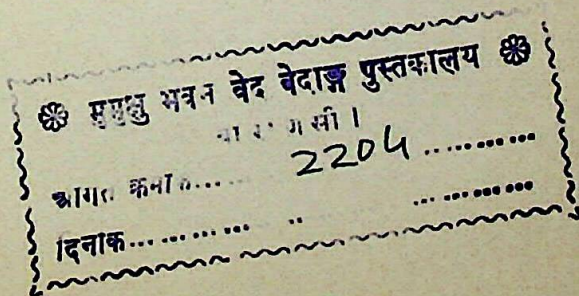 मुमुक्षु भवन वेद वेदाङ्ग पुस्तकालय
वा रा ण सी ।
आगत क्रमांक...... 2204 ..........
दिनांक........... .. ..............